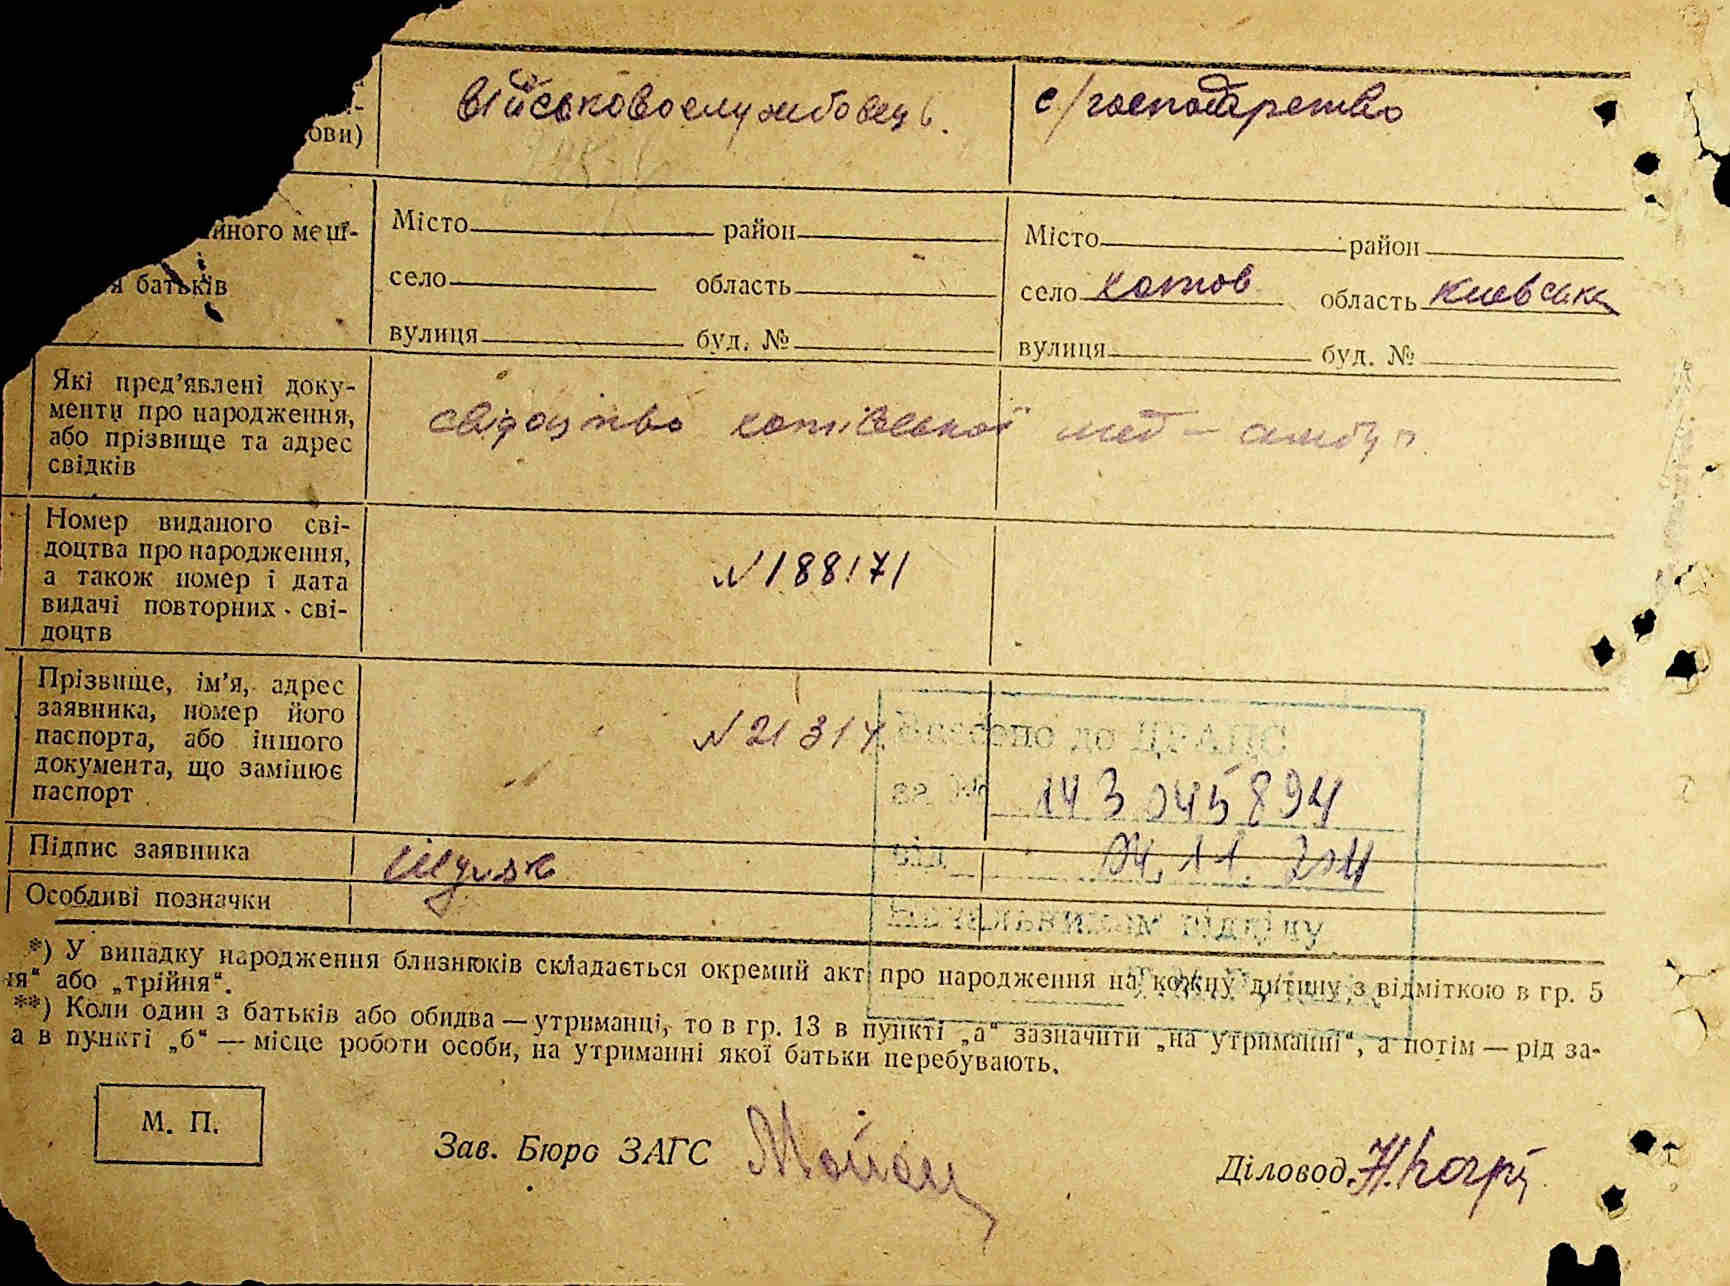 військовослужбовець.
с/господарство
ови)
йного меш-
я батьків
Місто район
село область
вулиця буд. №
Місто район
село Хотов область Киевська
вулиця буд. №
Які пред’явлені доку-
менти про народження,
або прізвище та адрес
свідків
свідоцтво хотівської мед-амбул
Номер виданого сві-
доцтва про народження,
а також номер і дата
видачі повторних сві-
доцтв
N 188171
Прізвище, ім’я, адрес
заявника, номер його
паспорта, або іншого
документа, що замінює
паспорт
N 21314
до ДРАЦС
за №
143 045894
від 04.11.2011
Підпис заявника
Особливі позначки
відділу
*) У випадку народження близнюків складається окремий акт про народження на кожну дитину з відміткою в гр. 5
ня“ або „трійня“.
**) Коли один з батьків або обидва — утриманці, то в гр. 13 в пункті „а“ зазначити „на утриманні“, а потім — рід за-
а в пункті „б“ — місце роботи особи, на утриманні якої батьки перебувають.
М. П.
Зав. Бюро ЗАГС
Діловод